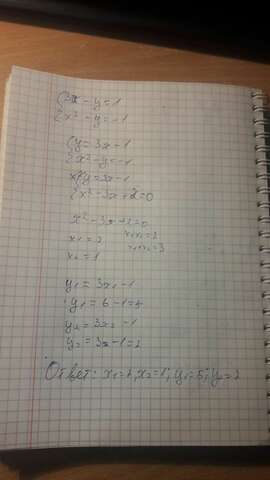 {3x - y = 1
{x² - y = -1
{y = 3x - 1
{x² - y = -1
{y = 3x - 1
{x² - 3x + 2 = 0
x² - 3x + 2 = 0
x₁ = 2 x₁x₂ = 2
x₂ = 1 x₁+x₂ = 3
y₁ = 3x₁ - 1
y₁ = 6 - 1 = 5
y₂ = 3x₂ - 1
y₂ = 3x - 1 = 2
Ответ: x₁ = 2, x₂ = 1; y₁ = 5; y₂ = 2